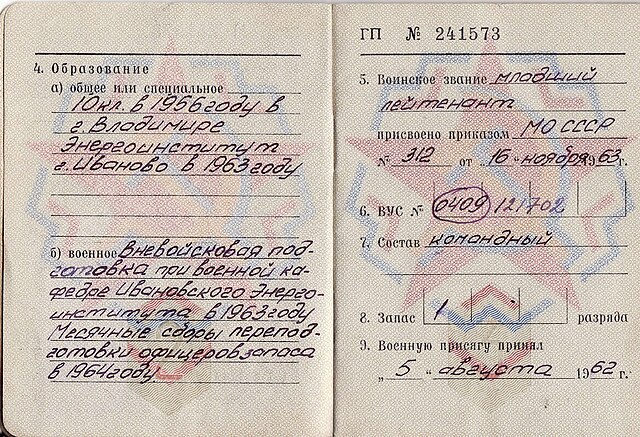 4. Образование
а) общее или специальное
10 кл. в 1956 году в
г. Владимире
Энергоинститут
г. Иваново в 1963 году
б) военное Вневойсковая под-
готовка при военной ка-
федре Ивановского Энерго-
института в 1963 году
Месячные сборы перепод-
готовки офицеров запаса
в 1964 году
ГП № 241573
5. Воинское звание младший
лейтенант
присвоено приказом МО СССР
№ 312 от „16“ ноября 1963 г.
6. ВУС № 0409 121702
7. Состав командный
8. Запас 1 разряда
9. Военную присягу принял
„5“ августа 1962 г.